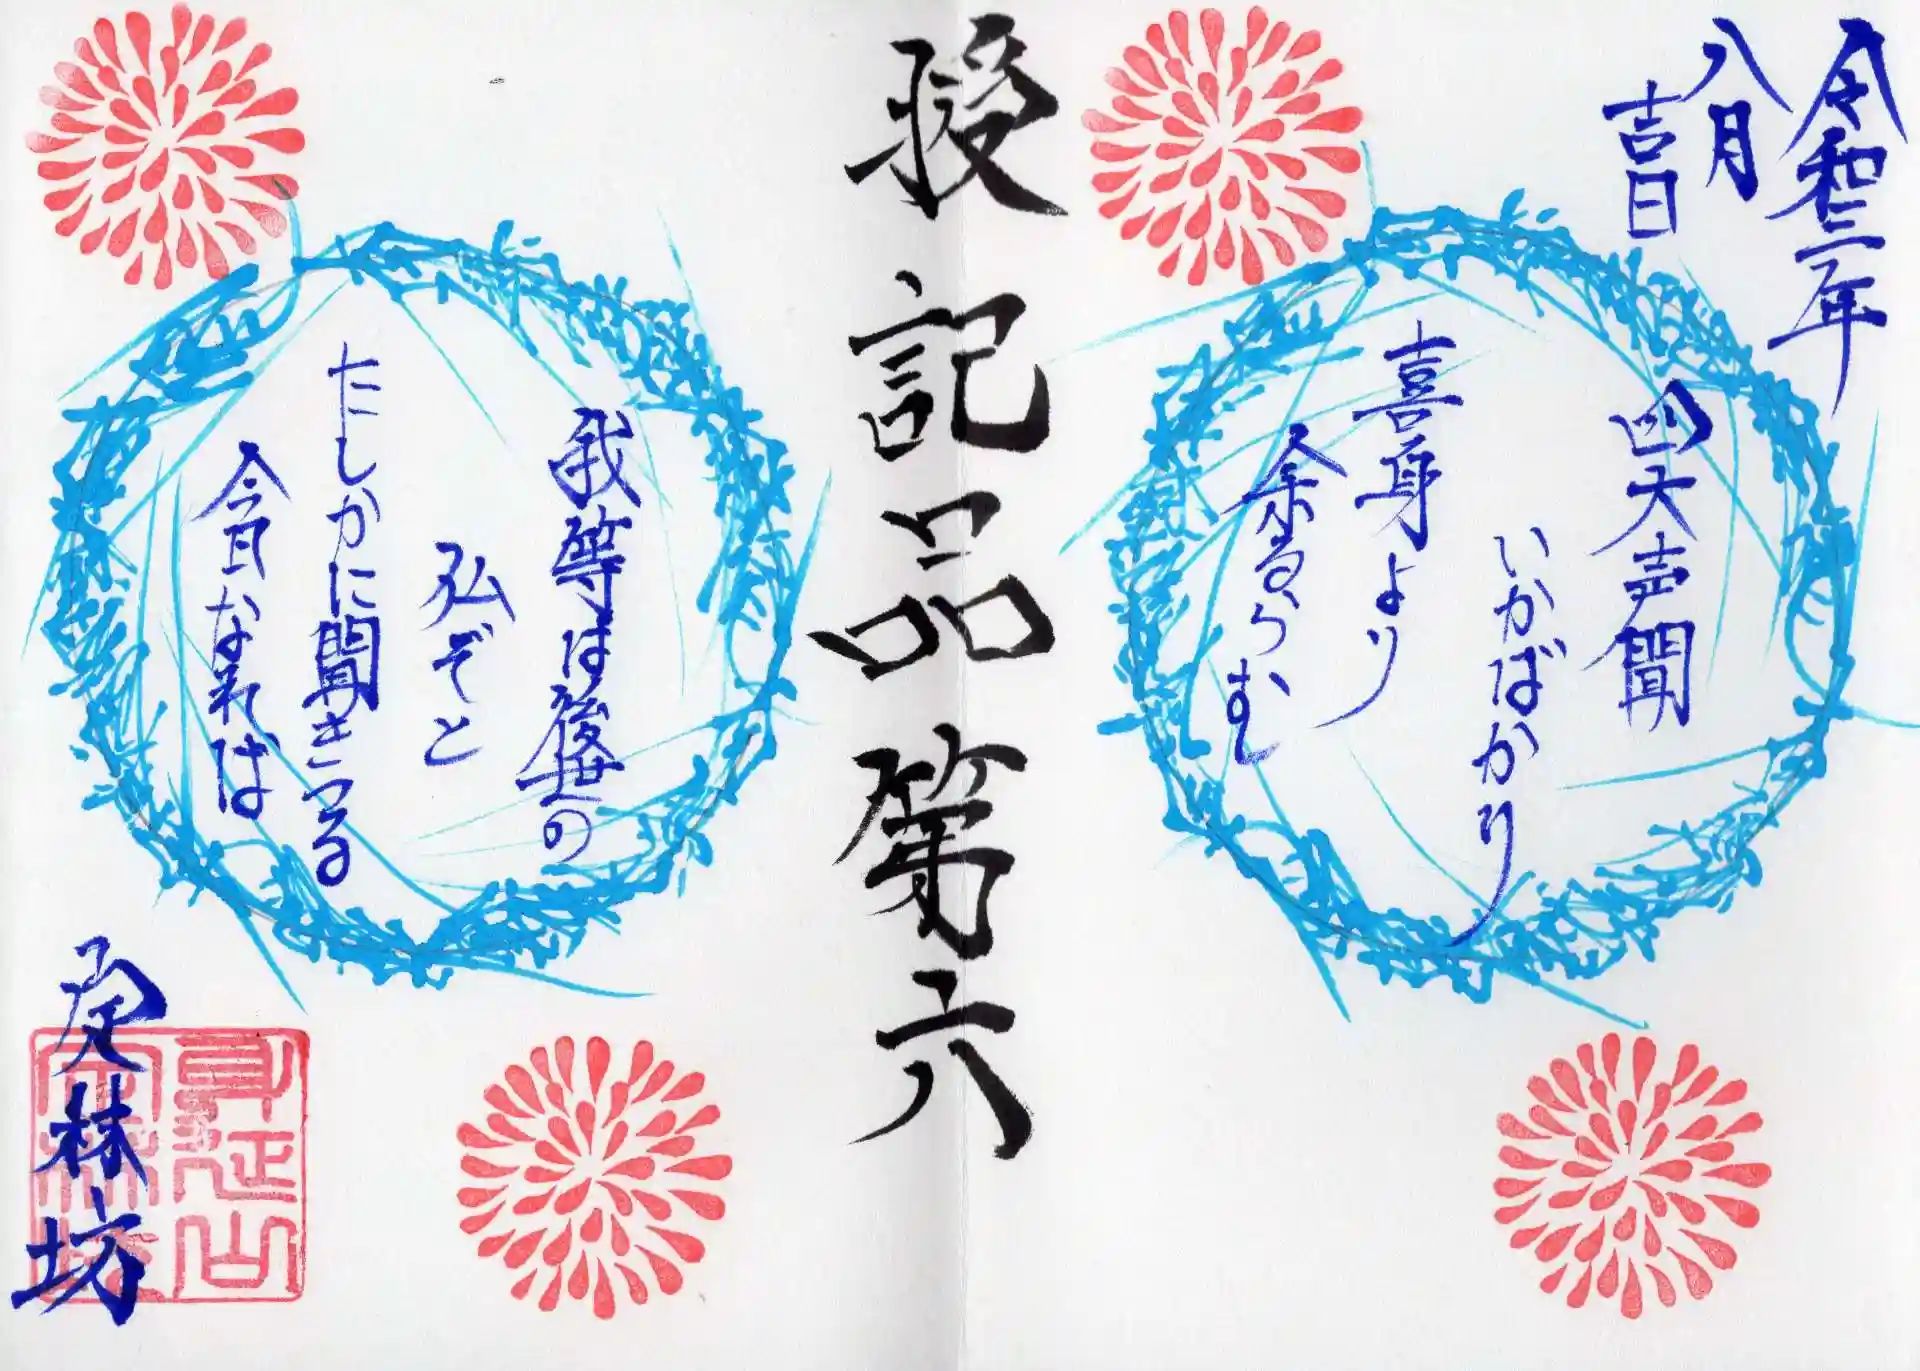 令和三年
八月
吉日
四大声聞
いかばかり
喜身より
余るらむ
授記品第六
我等は後世の
仏ぞと
たしかに聞きつる
今日なれば
林坊
身延山